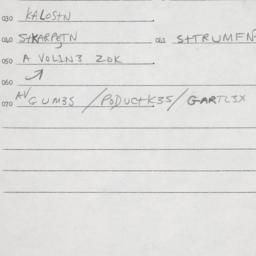 030 KALOSTN
040 STKARPETN 041 STTRUMFN
050 A VOLIN3 ZOK
060
070 AV GUM3S / PODUCTK3S / GARTL3X